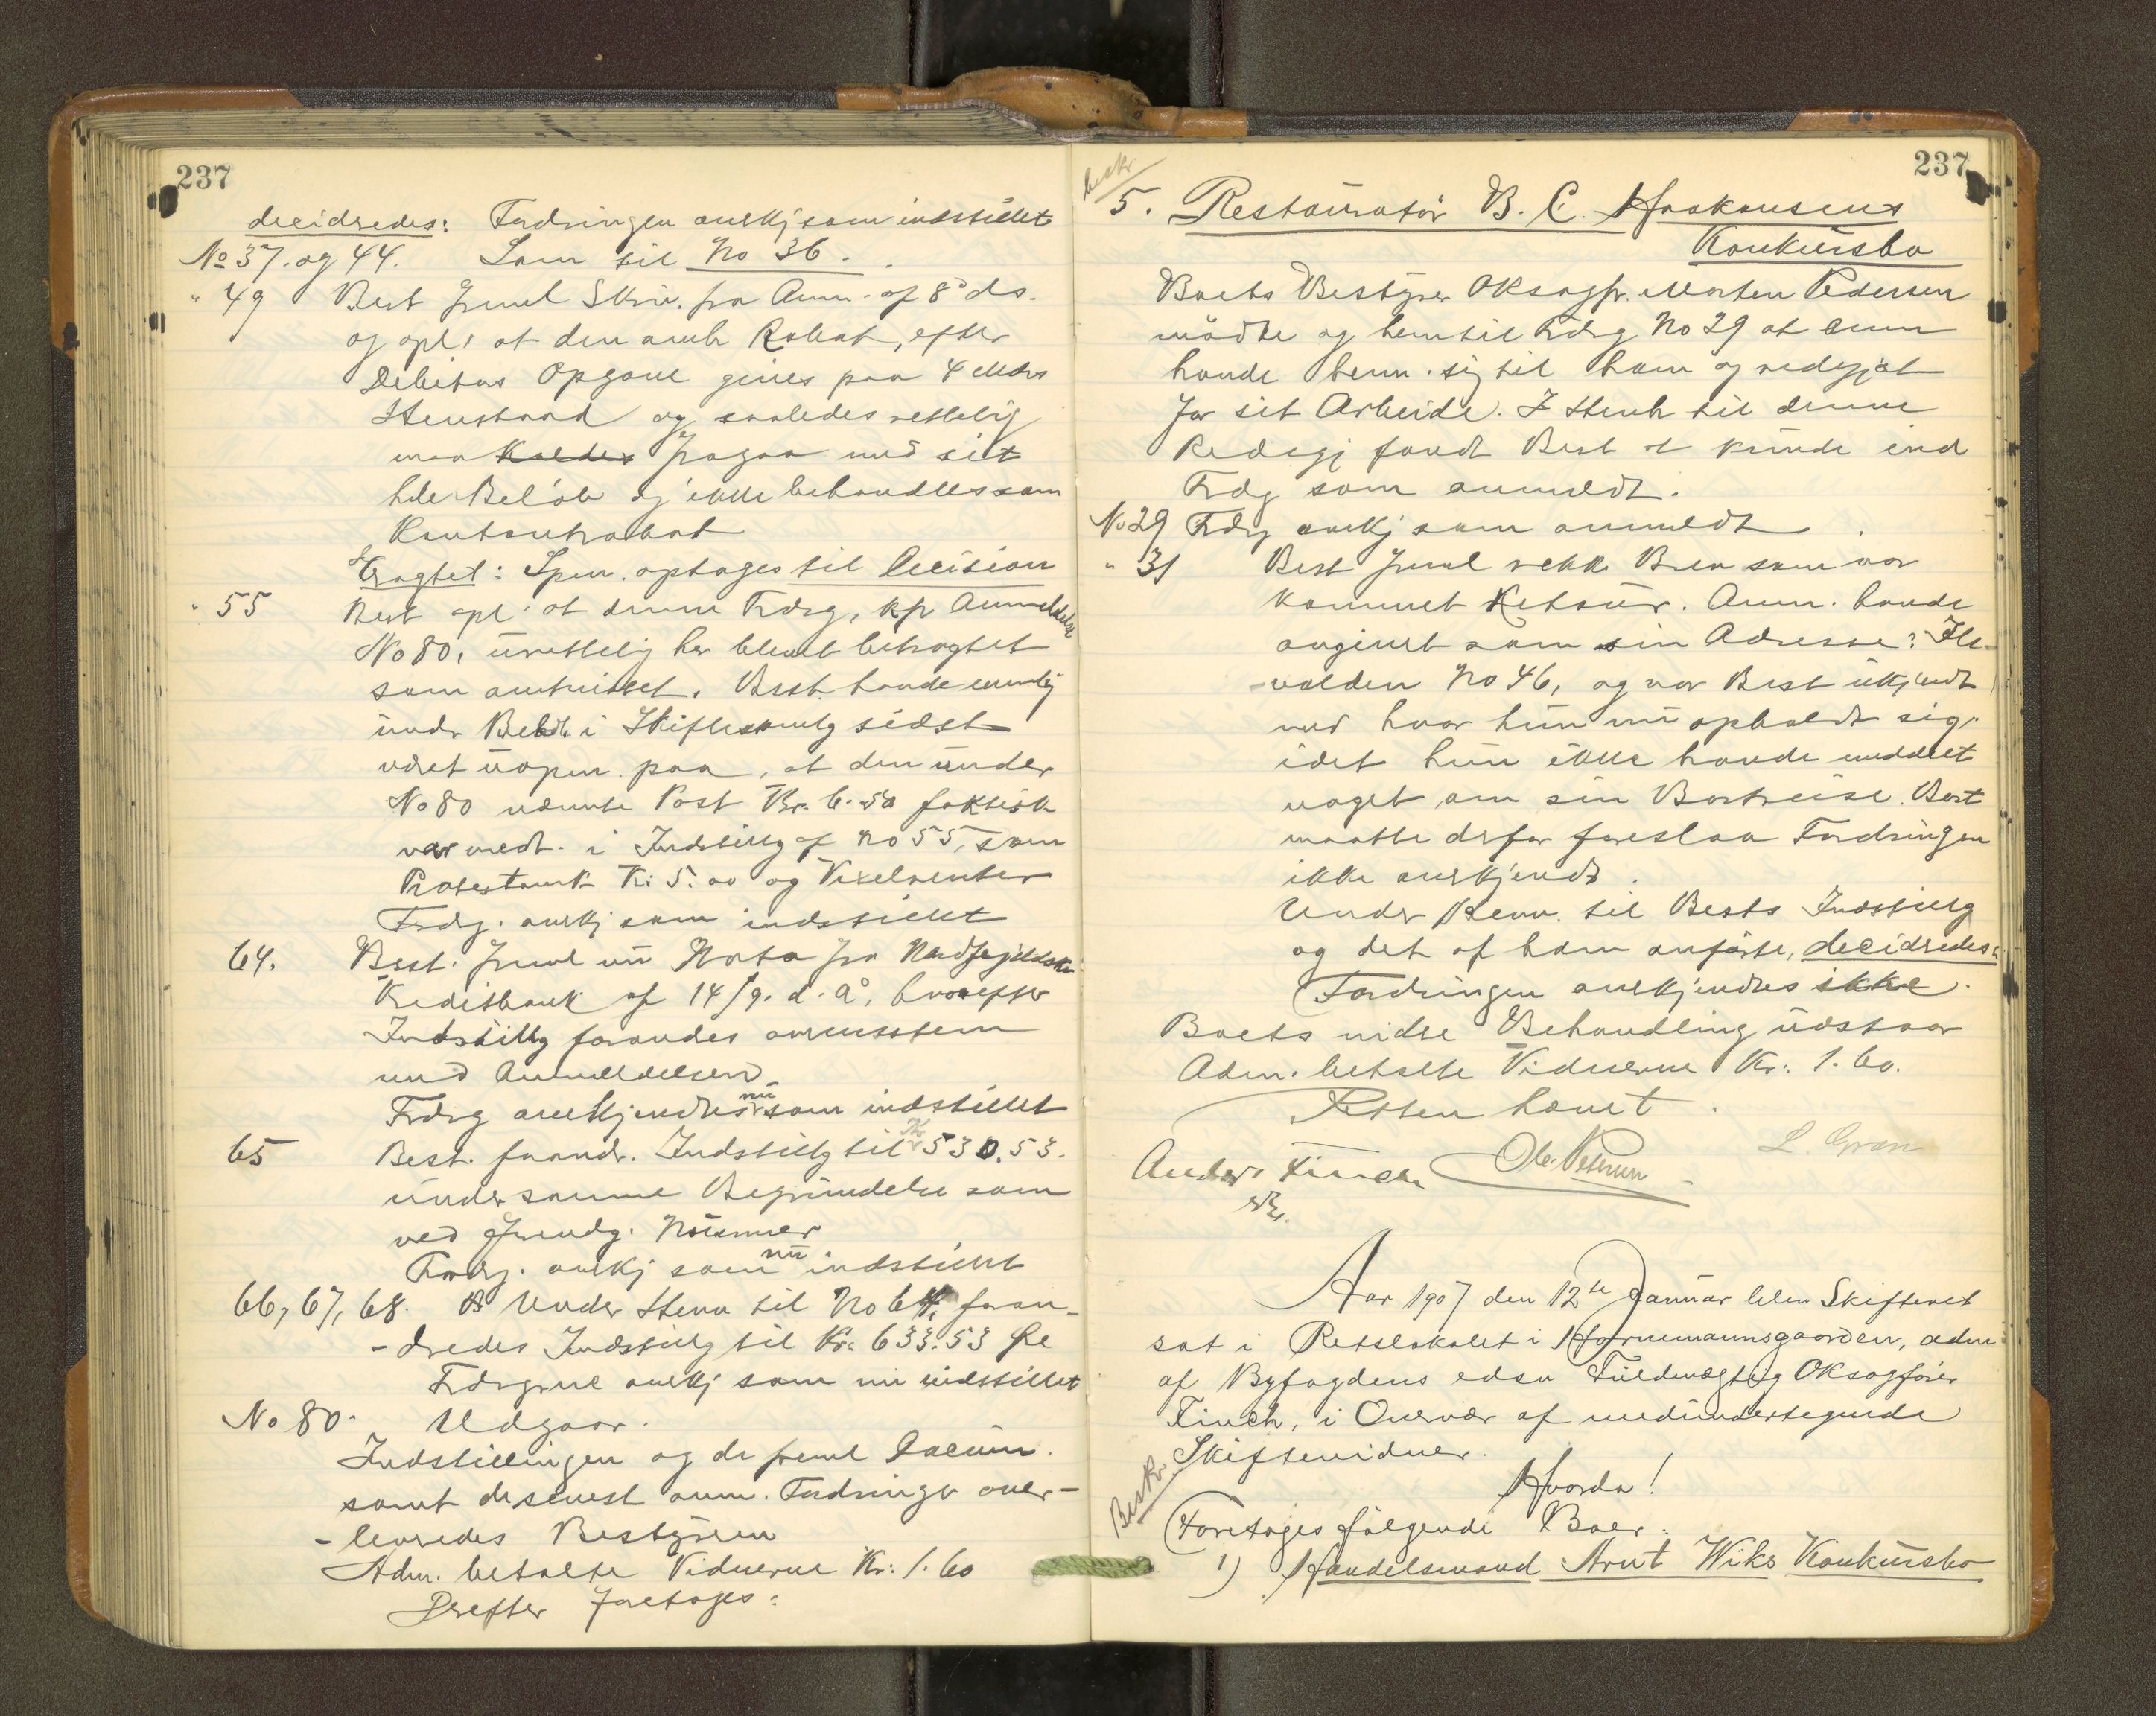 237
decidredes: Fordringen anerkj som indstillet
No 37. og 44. Som til No 36.
" 49 Best freml Skriv. fra Anm. af 8de ds.
og opl. at den anm Rabat, efter
Debitors Opgave gives paa 4 Mdrs
Henstand og saaledes rettelig
maa kaldes fragaa med sit
hele Beløb og ikke behandles som
Kontantrabat
Eragtet: Spm. optages til Decision
" 55 Best opl. at denne Frdrg, kfr Anmeldelse
No 80, urettelig her blevet betragtet
som omtvistet. Best. havde nemlig
under Behdl. i Skiftesamlg sidst
været uopm. paa, at den under
No 80 nævnte Post Kr. 6.50 faktisk
var medt. i Indstillg af No 55, som
Protestomk Kr 5.00 og Vexelrenter
Frdrg. anerkj som indstillet
64. Best. freml nu Nota fra Nordfjeldske
Kreditbank af 14/9. d. å, hvorefter
Indstillg forandres overensstem
med Anmeldelsen.
Frdrg anerkjendtes nu som indstillet
65 Best. forandr. Indstillg til Kr 530.53.
under samme Begrundelse som
ved foregdg. Nummer
Frdrg. anerkj som nu indstillet
66, 67, 68. Under Henv til No 64, foran-
-dredes Indstillg til Kr. 633.53 Øre
Frdrgrne anerkj som nu indstillet
No 80. Udgaar.
Indstillingen og de freml Docum.
samt de senest anm. Fordringer over-
-leveredes Bestyreren
Adm. betalte Vidnerne Kr: 1.60
Derefter foretages:
237
beskr
5. Restauratør B. C. Haakonsens
Konkursbo
Boets Bestyrer OKsagfr. Morten Pedersen
mødte og bem til Frdrg No 29 at Anm
havde henv. sig til ham og redegjort
for sit Arbeide. I Henh til denne
Redegj fandt Best at kunde ind
Frdg som anmeldt.
No 29 Frdrg anerkj som anmeldt.
" 31 Best freml rekk. Brev som var
kommet Retour. Anm. havde
angivet som sin Adresse: Ile-
-volden No 46, og var Best ukjendt
med hvor hun nu opholdt sig,
idet hun ikke havde meddelt
noget om sin Bortreise. Best
maatte derfor foreslaa Fordringen
ikke anerkjendt.
Under Henv. til Bests Indstillg
og det af ham anførte, decidredes:
Fordringen anerkjendtes ikke.
Boets vidre Behandling udstaar
Adm. betalte Vidnerne Kr: 1.60.
Retten hævet.
Anders Finch Ole Petersen L. Gran
Aar 1907 den 12te Januar blev Skifteret
sat i Retslokalet i Hornemannsgaarden, adm
af Byfogdens edsv Fuldmægtig OKsagfører
Finch, i Overvær af medundertegnede
Skiftevidner.
Hvorda!
Beskr
Foretages følgende Boer:
1) Handelsmand Arnt Wiks Konkursbo